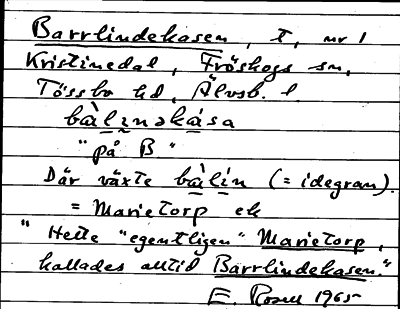 Barrlindekasen, t, nr 1
Kristinedal, Fröskogs sn,
Tössbo hd, Älvsb. l.
bàlinəkása
"på B"
Där växte bàlin (= idegran).
= Marietorp ek
"Hette "egentligen" Marietorp,
kallades alltid Barrlindekasen."
E. Rosell 1965